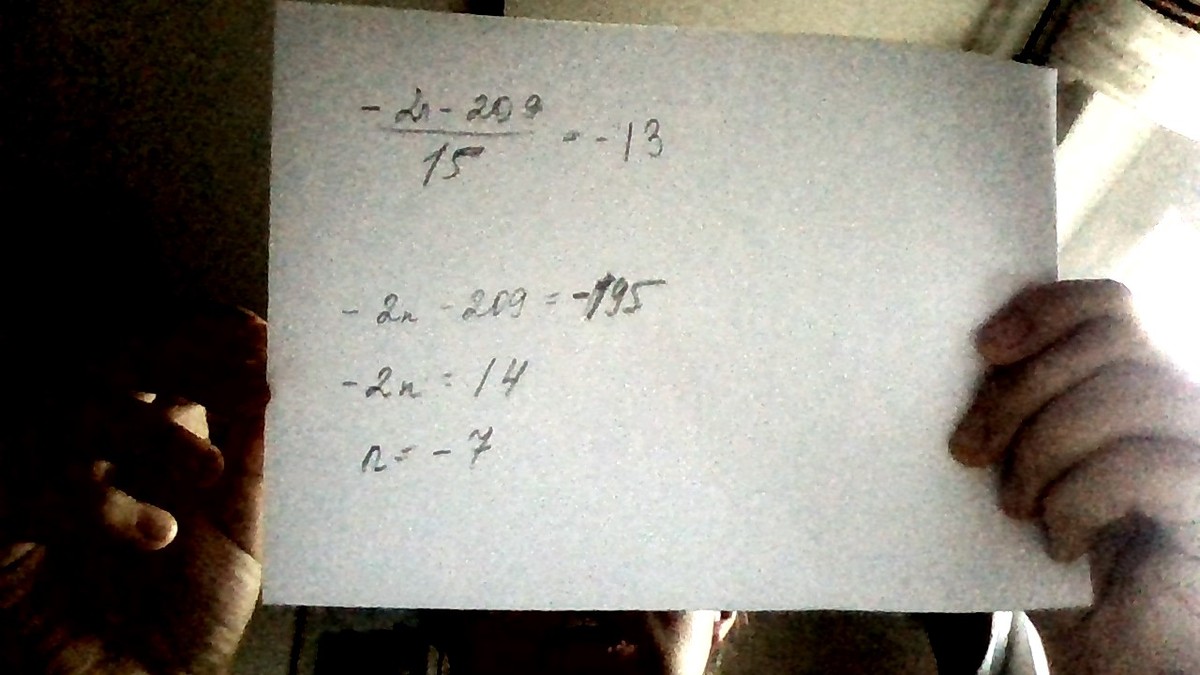 -2n-209
15
=-13
-2n-209=-195
-2n=14
n=-7